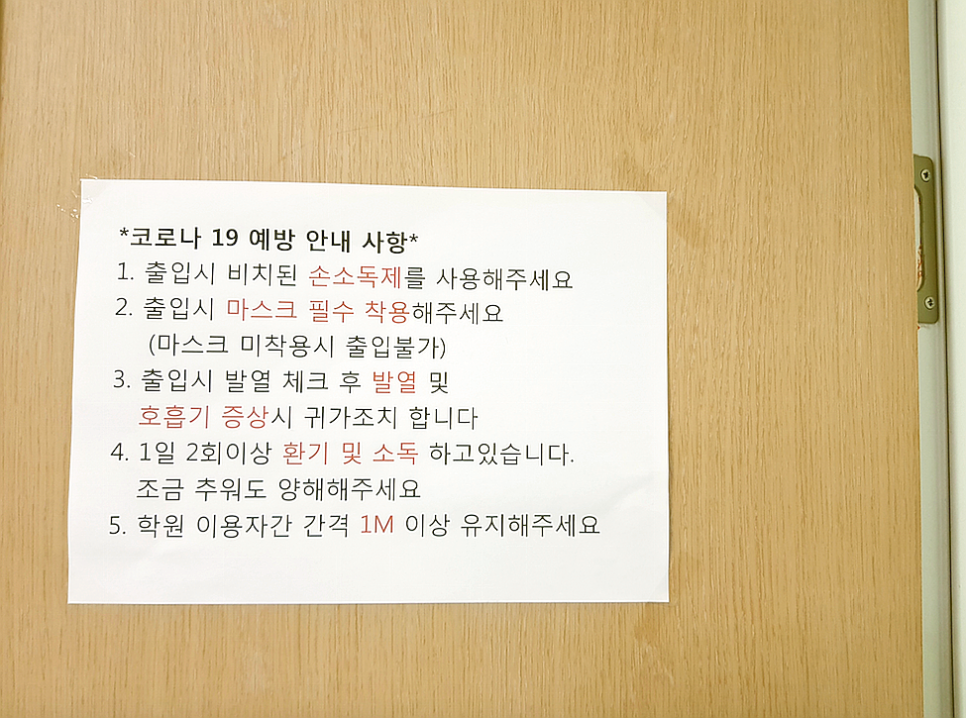 *코로나 19 예방 안내 사항*
1. 출입시 비치된 손소독제를 사용해주세요
2. 출입시 마스크 필수 착용해주세요
(마스크 미착용시 출입불가)
3. 출입시 발열 체크 후 발열 및
호흡기 증상시 귀가조치 합니다
4. 1일 2회이상 환기 및 소독 하고있습니다.
조금 추워도 양해해주세요
5. 학원 이용자간 간격 1M 이상 유지해주세요